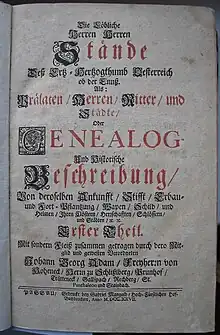 Die Löbliche
Herren Herren
Stände
Deß Ertz-Hertzogthumb Oesterreich
ob der Ennß.
Als:
Prälaten / Herren / Ritter / und
Städte /
Oder
GENEALOG-
Und Historische
Beschreibung /
Von deroselben Ankunfft / Stifft / Erbau-
und Fort-Pflantzung / Wapen / Schild / und
Helmen / Ihren Clöstern / Herrschafften / Schlössern /
und Städten / ꝛc. ꝛc.
Erster Theil.
Mit sondern Fleiß zusammen getragen durch dero Mit-
glid und gewesten Verordneten
Johann Georg Adam / Freyherrn von
Hoheneck / Herrn zu Schlüßlberg /
Gallspach /
und
PASSAU, gedruckt bey Gabriel Mangold / Hoch-Fürstlichen Hof-
Buchdruckern, Anno